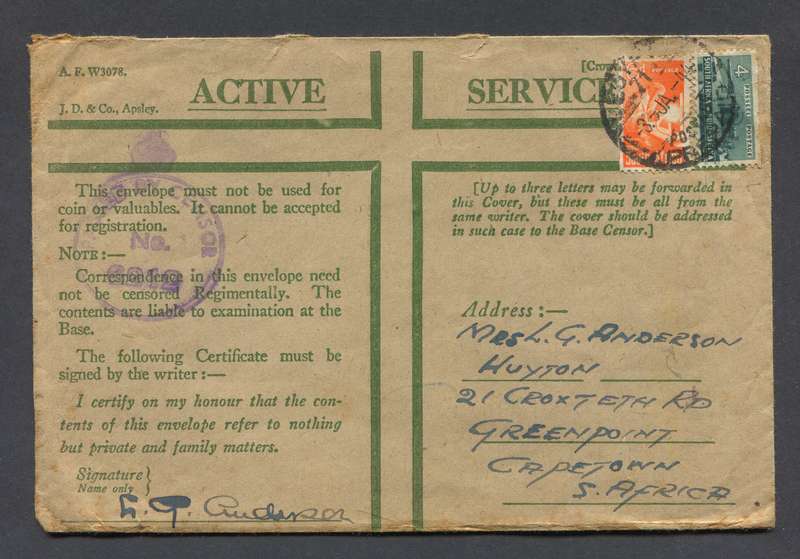 A. F. W3078.
J. D. & Co., Apsley.
ACTIVE
SERVICE
This envelope must not be used for
coin or valuables. It cannot be accepted
for registration.
NOTE:—
Correspondence in this envelope need
not be censored Regimentally. The
contents are liable to examination at the
Base.
The following Certificate must be
signed by the writer:—
I certify on my honour that the con-
tents of this envelope refer to nothing
but private and family matters.
Signature
Name only
L. G. Anderson
No.
[Up to three letters may be forwarded in
this Cover, but these must be all from the
same writer. The cover should be addressed
in such case to the Base Censor.]
Address:—
MRS L. G. ANDERSON
HUYTON
21 CROXTETH RD
GREENPOINT
CAPETOWN
S. AFRICA
4
SOUTH AFRICA
POSTAGE